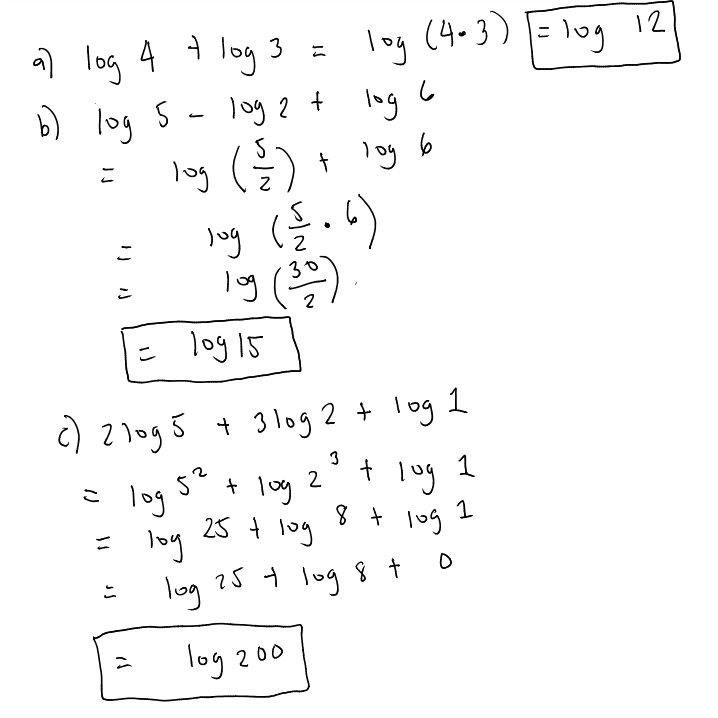 a) log 4 + log 3 = log (4·3) = log 12
b) log 5 - log 2 + log 6
= log (5/2) + log 6
= log (5/2 · 6)
= log (30/2)
= log 15
c) 2log 5 + 3log 2 + log 1
= log 5² + log 2³ + log 1
= log 25 + log 8 + log 1
= log 25 + log 8 + 0
= log 200